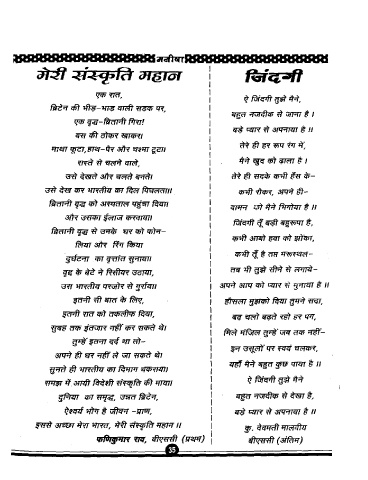 मनीषा
मेरी संस्कृति महान
एक रात,
ब्रिटेन की भीड़-भाड़ वाली सडक पर,
एक वृद्ध-ब्रितानी गिरा!
बस की ठोकर खाकर।
माथा फूटा,हाथ-पैर और चश्मा टूटा।
रास्ते से चलने वाले,
उसे देखते और चलते बनते।
उसे देख कर भारतीय का दिल पिघलता।।
ब्रितानी वृद्ध को अस्पताल पहुंचा दिया।
और उसका ईलाज करवाया।
ब्रितानी वृद्ध से उनके घर को फोन-
लिया और रिंग किया
दुर्घटना का वृतांत सुनाया।
वृद्ध के बेटे ने रिसीयर उठाया,
उस भारतीय परजोर से गुर्राया।
इतनी सी बात के लिए,
इतनी रात को तकलीफ दिया,
सुबह तक इंतजार नहीं कर सकते थे।
तुम्हें इतना दर्द था तो-
अपने ही घर नहीं ले जा सकते थे।
सुनते ही भारतीय का दिमाग चकराया।
समझ में आयी विदेशी संस्कृति की माया।
दुनिया का समृद्ध, उन्नत ब्रिटेन,
ऐश्वर्य भोग है जीवन -प्राण,
इससे अच्छा मेरा भारत, मेरी संस्कृति महान ।।
फणिकुमार राव, बीएससी (प्रथम)
जिंदगी
ऐ जिंदगी तुझे मैने,
बहुत नजदीक से जाना है ।
बडे प्यार से अपनाया है ।।
तेरे ही हर रूप रंग में,
मैने खुद को ढाला है ।
तेरे ही सदके कभी हँस के-
कभी रोकर, अपने ही-
दामन को मैने भिगोया है ।।
जिंदगी तूँ बड़ी बहुरूपा है,
कभी आंधी हवा का झोंका,
कभी तूँ है तप्त मरूस्थल-
तब भी तुझे सीने से लगाये-
अपने आप को प्यार से है ।।
हौसला मुझको दिया तुमने सदा,
बढ चलो बढ़ते रहो हर पग,
मिले मंजिल तुम्हें जब तक नहीं-
इन उसूलों पर स्वयं चलकर,
यहाँ मैने बहुत कुछ पाया है ।।
ऐ जिंदगी तुझे मैने
बहुत नजदीक से देखा है,
बडे प्यार से अपनाया है ।।
कु. वेवमती मालदीय
बीएससी (अंतिम)
35